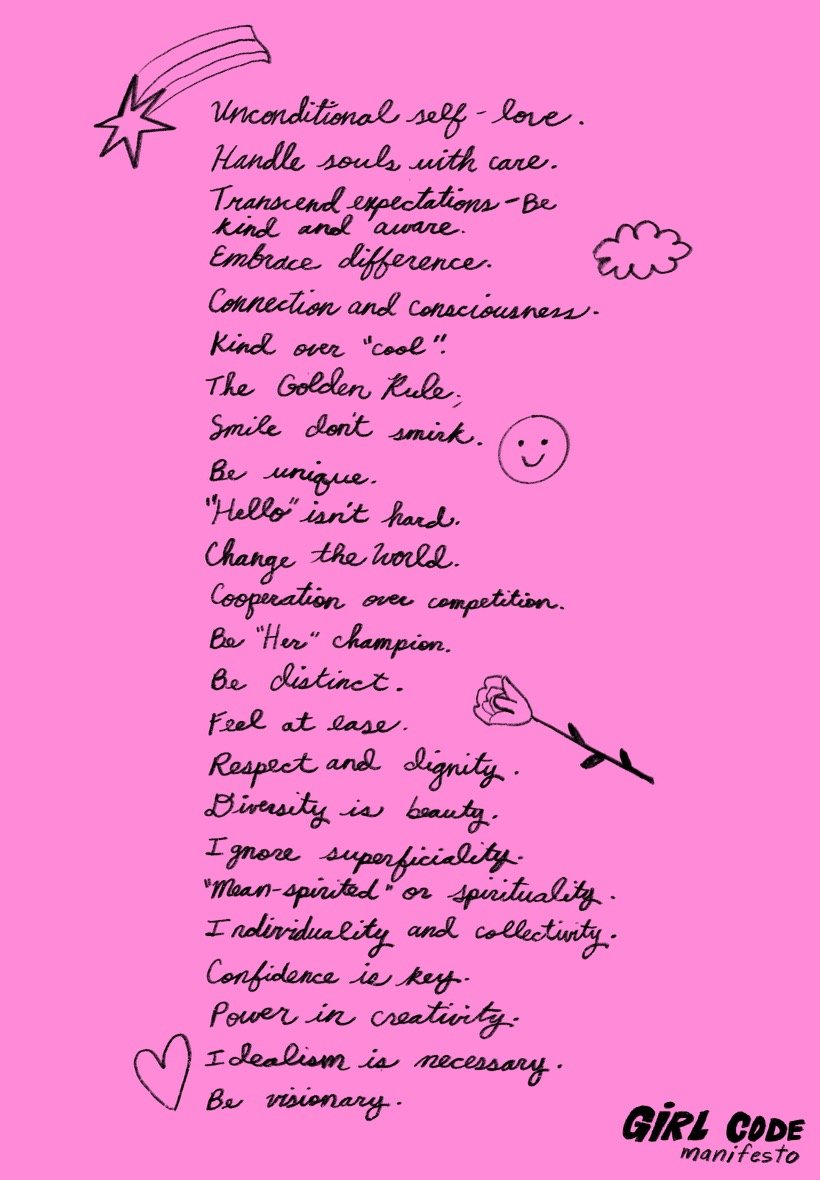 Unconditional self-love.
Handle souls with care.
Transcend expectations-Be
kind and aware.
Embrace difference.
Connection and consciousness.
Kind over "cool".
The Golden Rule.
Smile don't smirk.
Be unique.
"Hello" isn't hard.
Change the World.
Cooperation over competition.
Be "Her" champion.
Be distinct.
Feel at ease.
Respect and dignity.
Diversity is beauty.
Ignore superficiality.
"Mean-spirited" or spirituality.
Individuality and collectivity.
Confidence is key.
Power in creativity.
Idealism is necessary.
Be visionary.
GiRL CODE
manifesto